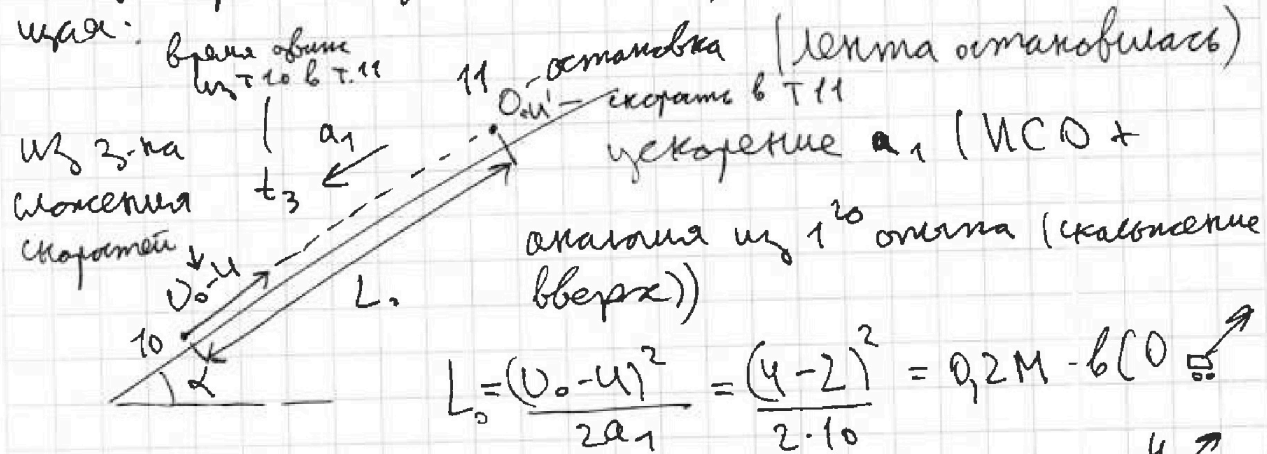 щая:
время движ
из т 10 в т. 11
11 остановка (лента остановилась)
0 u' - скорость в т 11
из з-на
сложения
скоростей
t₃
a₁
ускорение a₁ (ИСО +
аналогия из 1го опыта (скольжение
вверх))
υ₀-u
L₀
10
α
L₀ = (υ₀-u)²/2a₁ = (4-2)²/2·10 = 0,2 м - в СО
u